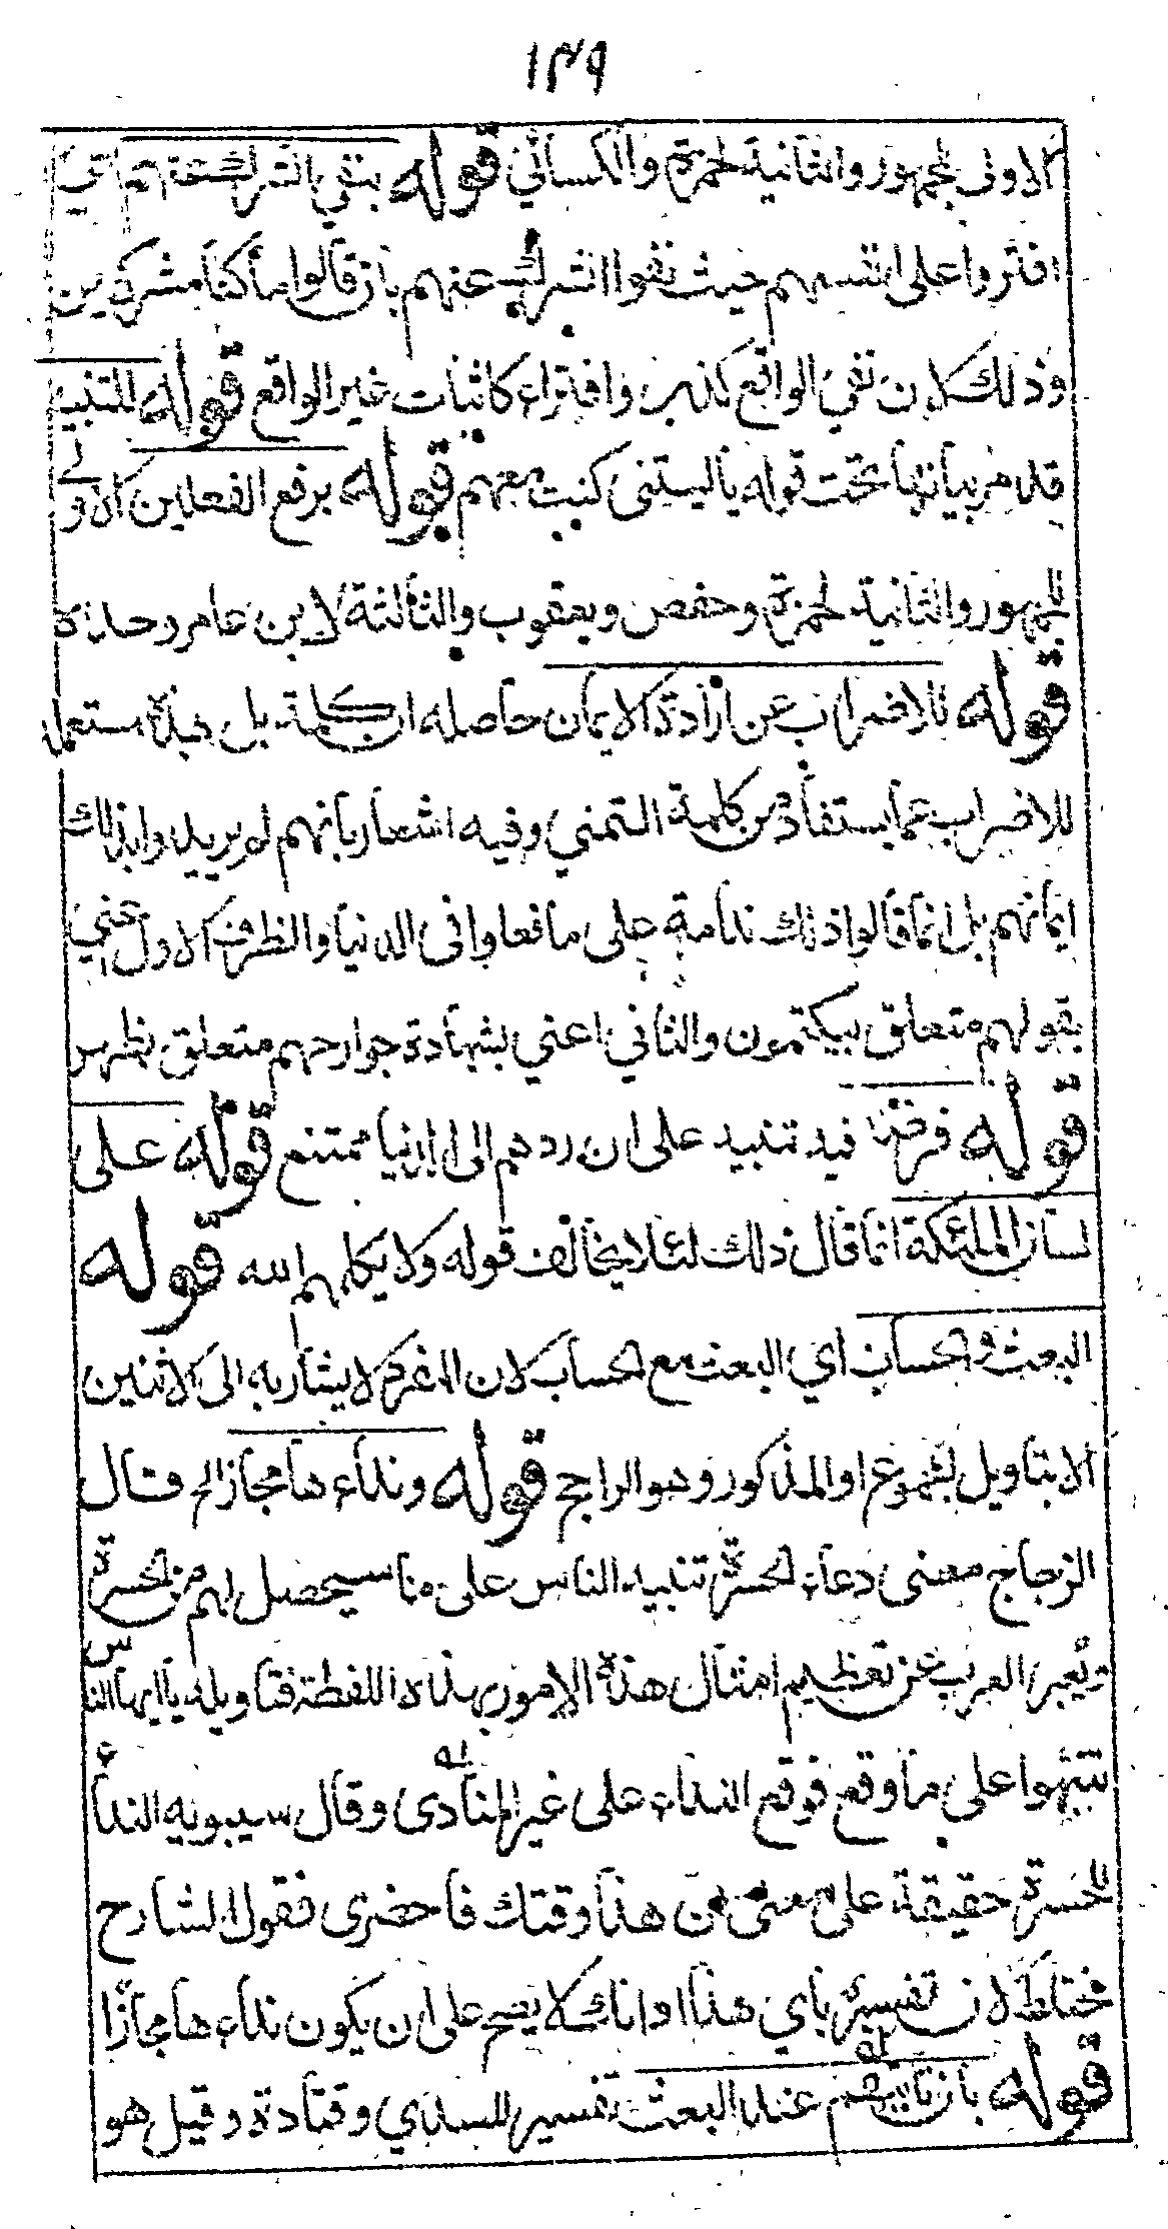 ١٣٩
الاولى لجمهور والثانية لحمزة والكسائي قوله بنفي الشرك عنهم اي
افتروا على انفسهم حيث نفوا الشرك عنهم بان قالوا ما كنا مشركين
وذلك لان نفي الواقع كذب وافتراء كاثبات غير الواقع قوله للتنبيه
قد مر بيانها تحت قوله ياليتني كنت معهم قوله برفع الفعلين الاولى
للجمهور والثانية لحمزة وحفص ويعقوب والثالثة لابن عامر وحده
قوله للاضراب عن ارادة الايمان حاصله ان كلمة بل هذه مستعملة
للاضراب عما يستفاد من كلمة التمني وفيه اشعار بانهم لم يريدوا بذلك
ايمانهم بل انما قالوا ذلك ندامة على ما فعلوا في الدنيا والظرف الاول اعني
بقولهم متعلق بيكتمون والثاني اعني بشهادة جوارحهم متعلق بظهر
قوله فرضا فيه تنبيه على ان ردهم الى الدنيا ممتنع قوله على
لسان الملئكة انما قال ذلك لئلا يخالف قوله ولا يكلمهم الله قوله
البعث والحساب اي البعث مع الحساب لان المفرد لا يشار به الى الاثنين
الا بتاويل المجموع او المذكور وهو الراجح قوله ونداءها مجاز الخ قال
الزجاج معنى دعاء الحسرة تنبيه الناس على ما سيحصل لهم من الحسرة
ويعبر العرب عن تعظيم امثال هذه الامور بهذه اللفظة فتاويله يا ايها الناس
تنبهوا على ما وقع فوقع النداء على غير المنادى له وقال سيبويه النداء
للحسرة حقيقة على معنى ان هذا وقتك فاحضرى فقول الشارح
مختلط لان تفسيره باي هذا اوانك لا يصح على ان يكون نداءها مجازا
قوله بان تاتيهم عند البعث تفسير للسدي وقتادة وقيل هو